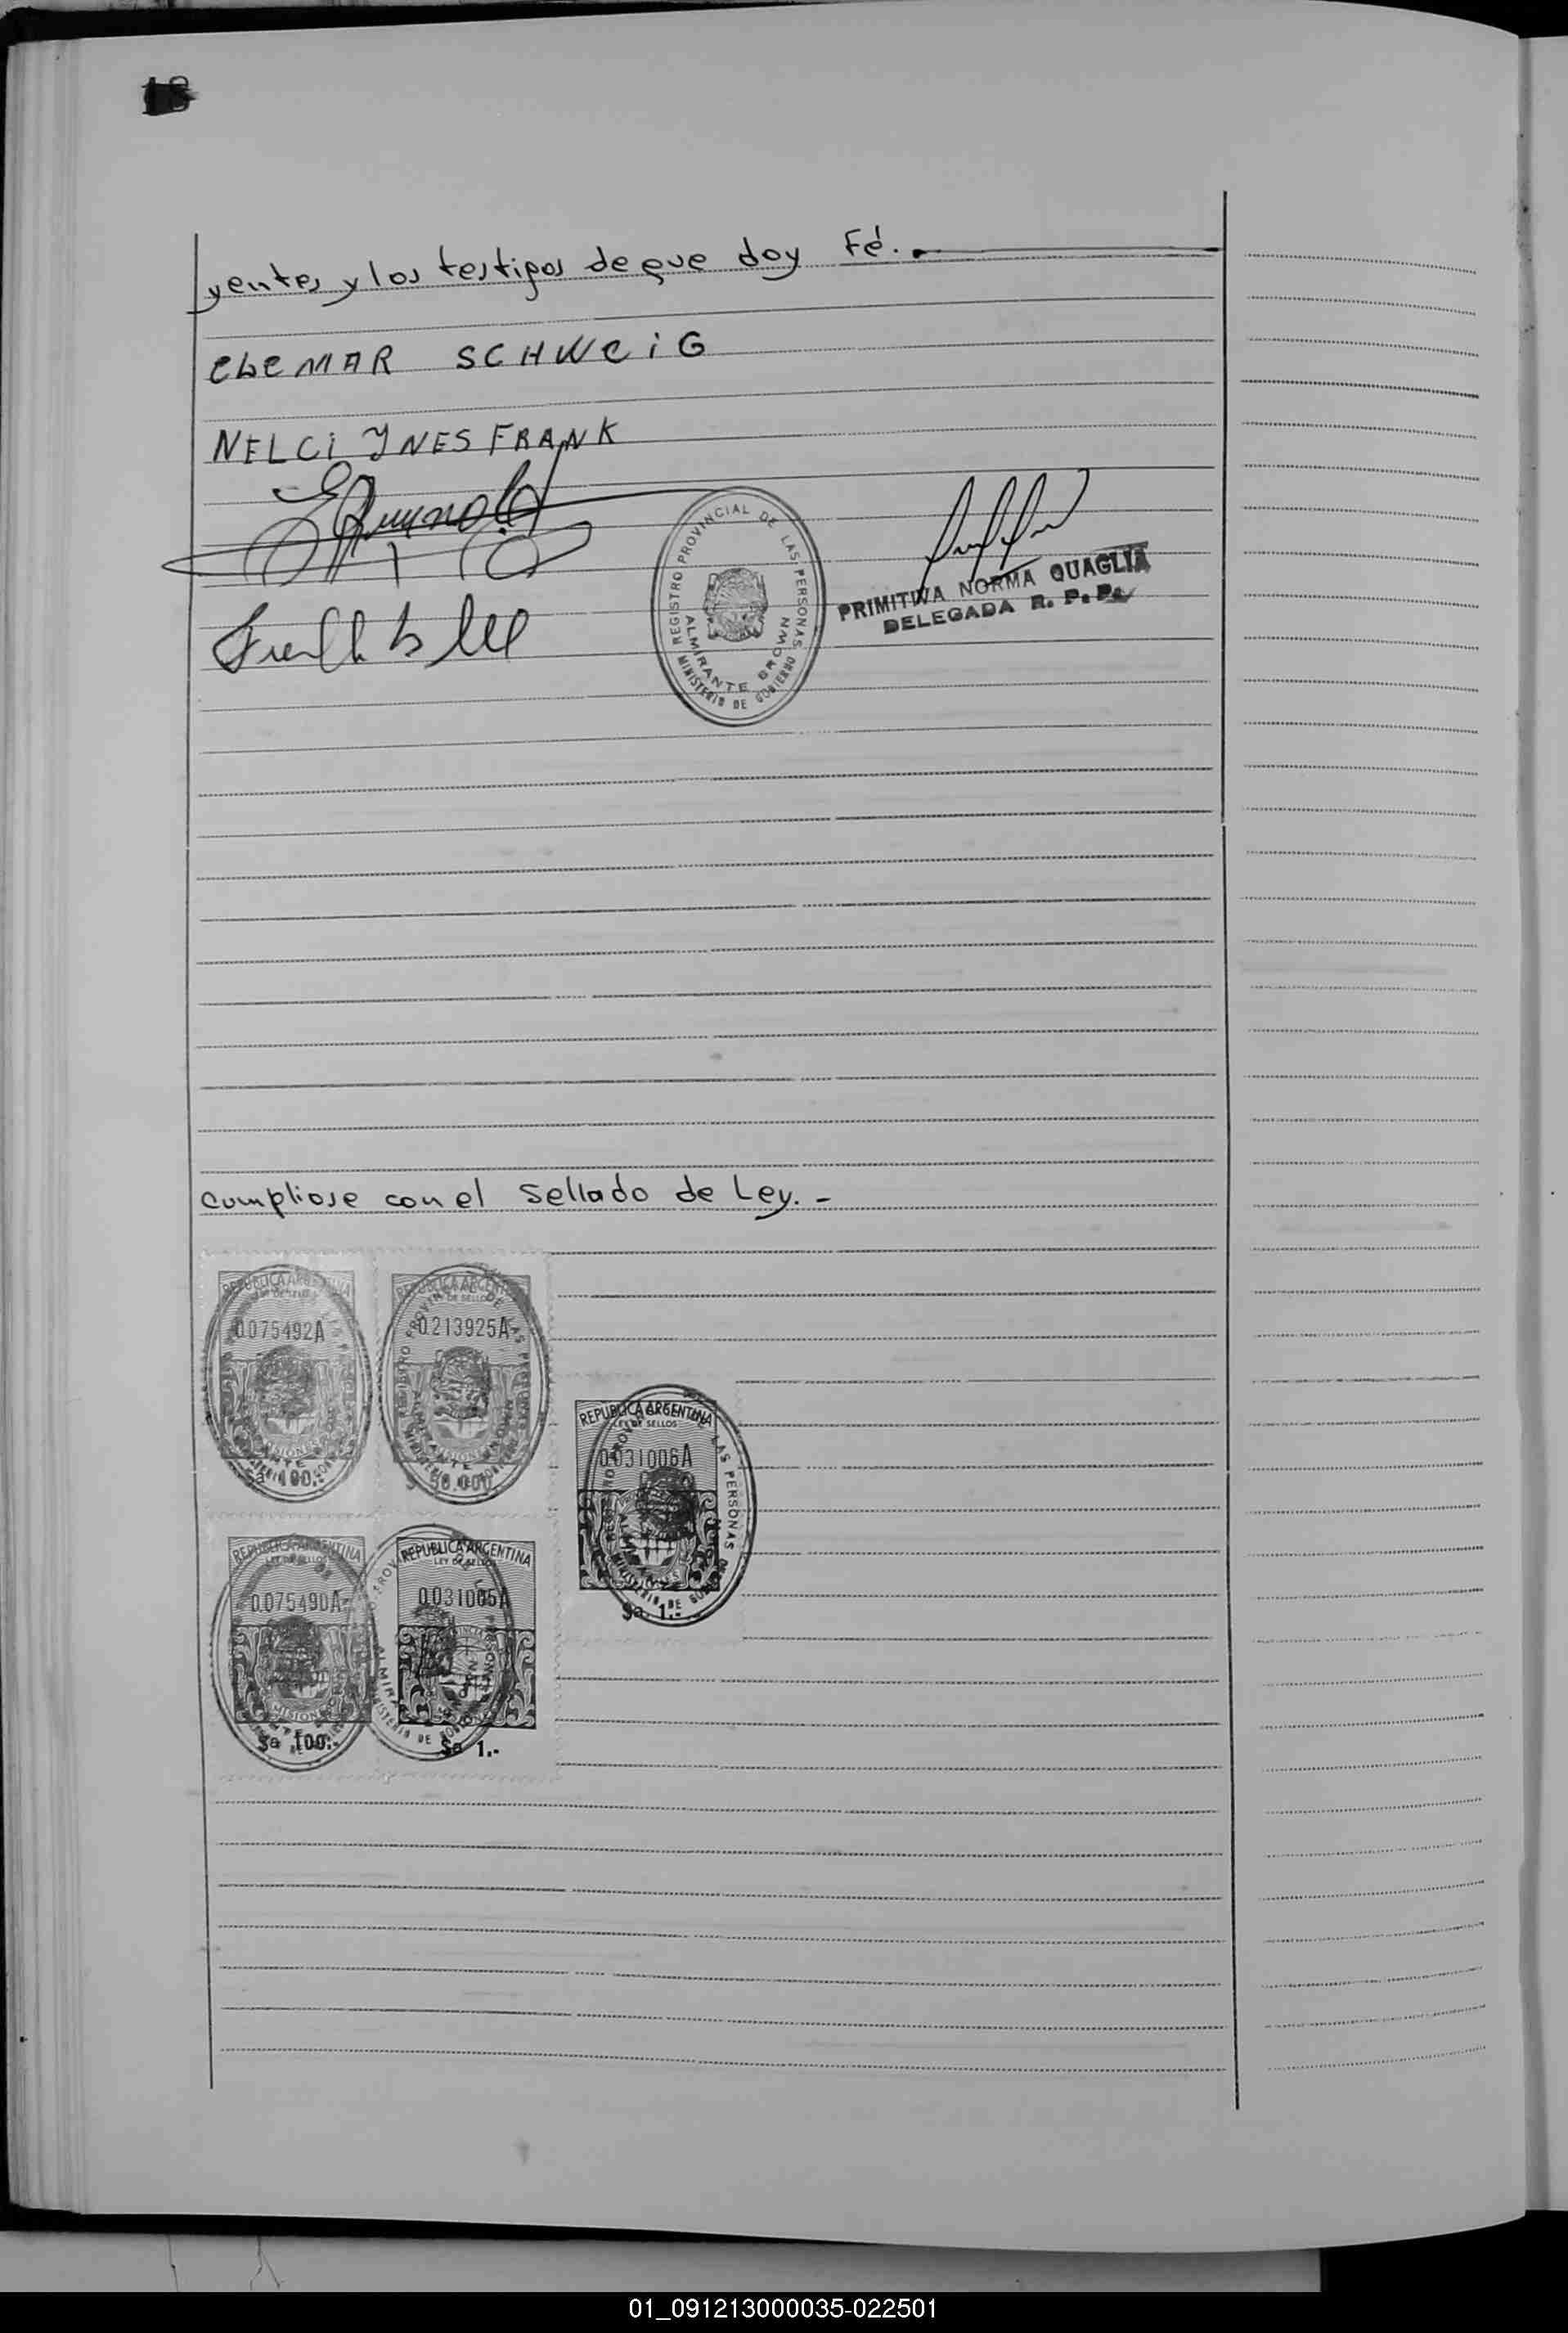 18
yentes y los testigos de que doy Fé.-
ELEMAR SCHWEIG
NELCI YNES FRANK
REGISTRO PROVINCIAL DE LAS PERSONAS
ALMIRANTE BROWN
MINISTERIO DE GOBIERNO
PRIMITIVA NORMA QUAGLIA
DELEGADA R. P. P.
Cumpliose con el Sellado de Ley.-
REPUBLICA ARGENTINA
0.075492A
MISIONES
$a 100.-
REPUBLICA ARGENTINA
LEY DE SELLOS
0.213925A
MISIONES
REPUBLICA ARGENTINA
LEY DE SELLOS
0.031006A
MISIONES
$a 1.-
REPUBLICA ARGENTINA
LEY DE SELLOS
0.075490A
MISIONES
$a 100.-
REPUBLICA ARGENTINA
LEY DE SELLOS
0.031005A
$a 1.-
01_091213000035-022501